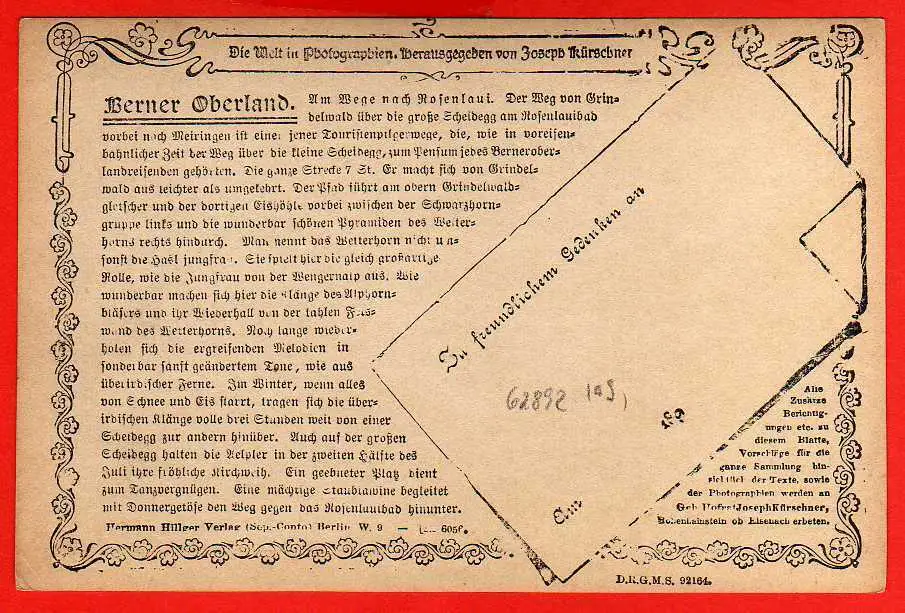 Die Welt in Photographien. Herausgegeben von Joseph Kürschner
Berner Oberland. Am Wege nach Rosenlaui. Der Weg von Grin=
delwald über die große Scheidegg am Rosenlauibad
vorbei nach Meiringen ist einer jener Touristenpilgerwege, die, wie in voreisen=
bahnlicher Zeit der Weg über die kleine Scheidegg, zum Pensum jedes Bernerober=
landreisenden gehörten. Die ganze Strecke 7 St. Er macht sich von Grindel=
wald aus leichter als umgekehrt. Der Pfad führt am obern Grindelwald=
gletscher und der dortigen Eishöhle vorbei zwischen der Schwarzhorn=
gruppe links und die wunderbar schönen Pyramiden des Wetter=
horns rechts hindurch. Man nennt das Wetterhorn nicht um=
sonst die Hasl jungfrau. Sie spielt hier die gleich großartige
Rolle, wie die Jungfrau von der Wengernalp aus. Wie
wunderbar machen sich hier die Klänge des Alphorn=
bläsers und ihr Wiederhall von der kahlen Fels=
wand des Wetterhorns. Noch lange wieder=
holen sich die ergreifenden Melodien in
sonderbar sanft geändertem Tone, wie aus
überirdischer Ferne. Im Winter, wenn alles
von Schnee und Eis starrt, tragen sich die über=
irdischen Klänge volle drei Stunden weit von einer
Scheidegg zur andern hinüber. Auch auf der großen
Scheidegg halten die Aelpler in der zweiten Hälfte des
Juli ihre fröhliche Kirchweih. Ein geebneter Platz dient
zum Tanzvergnügen. Eine mächtige Staublawine begleitet
mit Donnergetöse den Weg gegen das Rosenlauibad hinunter.
Hermann Hillger Verlag (Sep.-Conto) Berlin W. 9 — 6056.
Zu freundlichem Gedenken an
62892
Am 189
Alle
Zusätze
Berichtig-
ungen etc. zu
diesem Blatte,
Vorschläge für die
ganze Sammlung hin-
sichtlich der Texte, sowie
der Photographien werden an
Geh. Hofrat Joseph Kürschner,
Hohenhainstein ob Eisenach erbeten.
D.R.G.M.S. 92164.